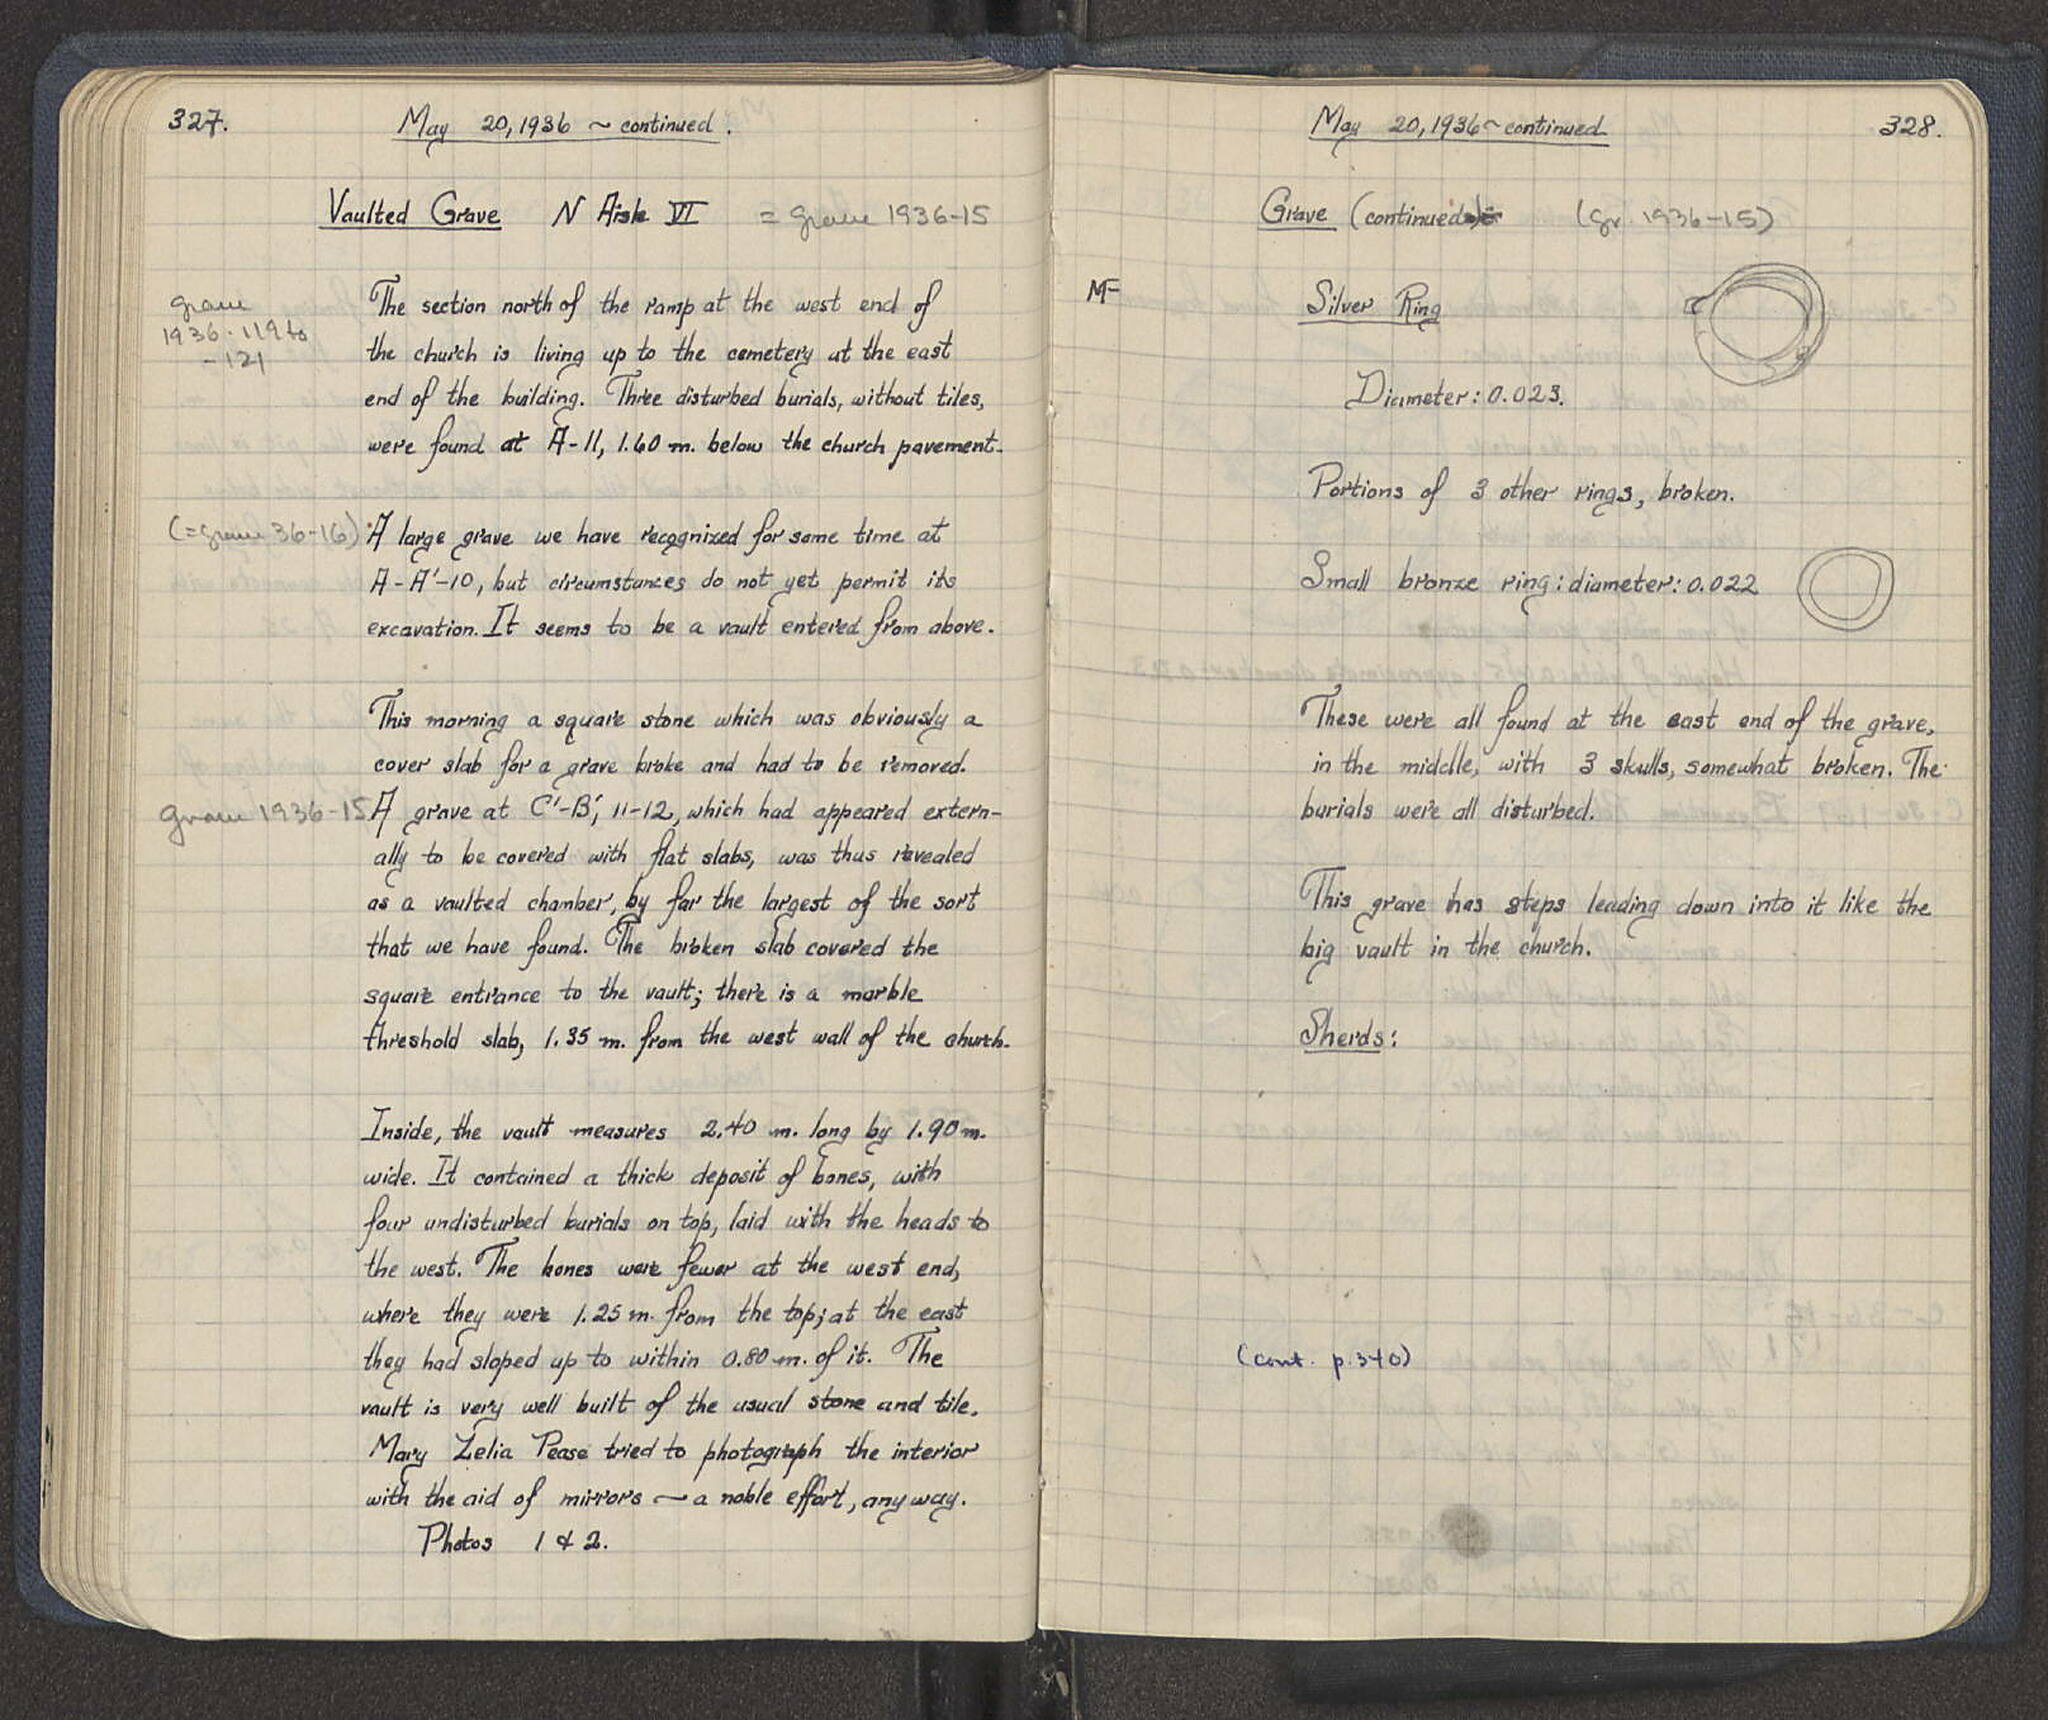 327.
May 20, 1936 ~ continued.
Vaulted Grave N Aisle VI = grave 1936-15
grave
1936-119 to
-121
The section north of the ramp at the west end of
the church is living up to the cemetery at the east
end of the building. Three disturbed burials, without tiles,
were found at A-11, 1.60 m. below the church pavement.
(=grave 36-16)
A large grave we have recognized for some time at
A-A'-10, but circumstances do not yet permit its
excavation. It seems to be a vault entered from above.
This morning a square stone which was obviously a
cover slab for a grave broke and had to be removed.
grave 1936-15
A grave at C'-B', 11-12, which had appeared extern-
ally to be covered with flat slabs, was thus revealed
as a vaulted chamber, by far the largest of the sort
that we have found. The broken slab covered the
square entrance to the vault; there is a marble
threshold slab, 1.35 m. from the west wall of the church.
Inside, the vault measures 2.40 m. long by 1.90 m.
wide. It contained a thick deposit of bones, with
four undisturbed burials on top, laid with the heads to
the west. The bones were fewer at the west end,
where they were 1.25 m. from the top; at the east
they had sloped up to within 0.80 m. of it. The
vault is very well built of the usual stone and tile.
Mary Zelia Pease tried to photograph the interior
with the aid of mirrors — a noble effort, anyway.
Photos 1 & 2.
May 20, 1936 ~ continued
328.
Grave (continued) (gr. 1936-15)
MF
Silver Ring
Diameter: 0.023.
Portions of 3 other rings, broken.
Small bronze ring: diameter: 0.022
These were all found at the east end of the grave,
in the middle, with 3 skulls, somewhat broken. The
burials were all disturbed.
This grave has steps leading down into it like the
big vault in the church.
Sherds:
(cont. p.340)